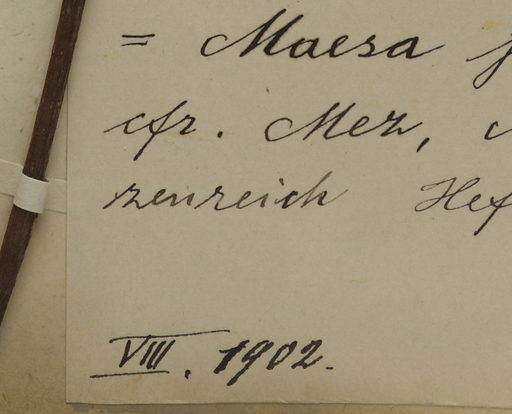 = Maesa
cfr. Mez,
zenreich Hef
VIII. 1902.